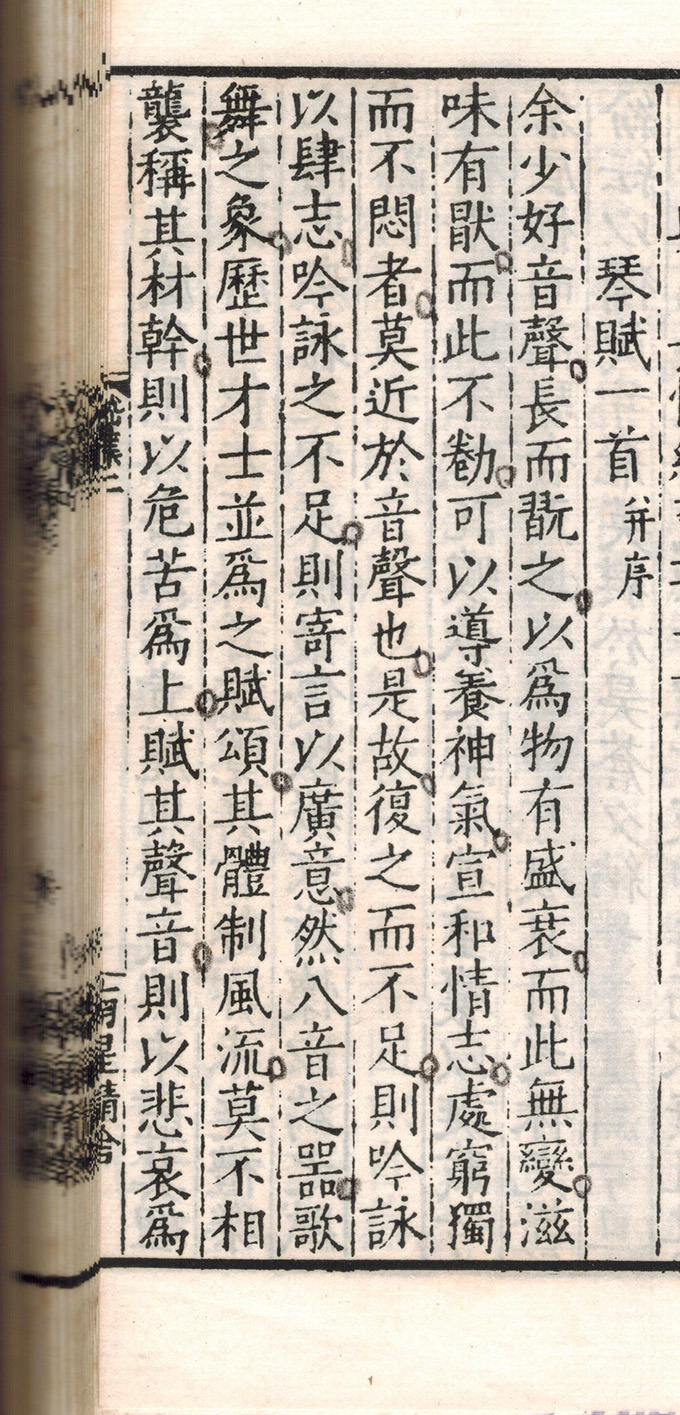 琴賦一首并序
余少好音聲長而翫之以爲物有盛衰而此無變滋
味有猒而此不勌可以導養神氣宣和情志處窮獨
而不悶者莫近於音聲也是故復之而不足則吟詠
以肆志吟詠之不足則寄言以廣意然八音之器歌
舞之象歷世才士並爲之賦頌其體制風流莫不相
襲稱其材幹則以危苦爲上賦其聲音則以悲哀爲